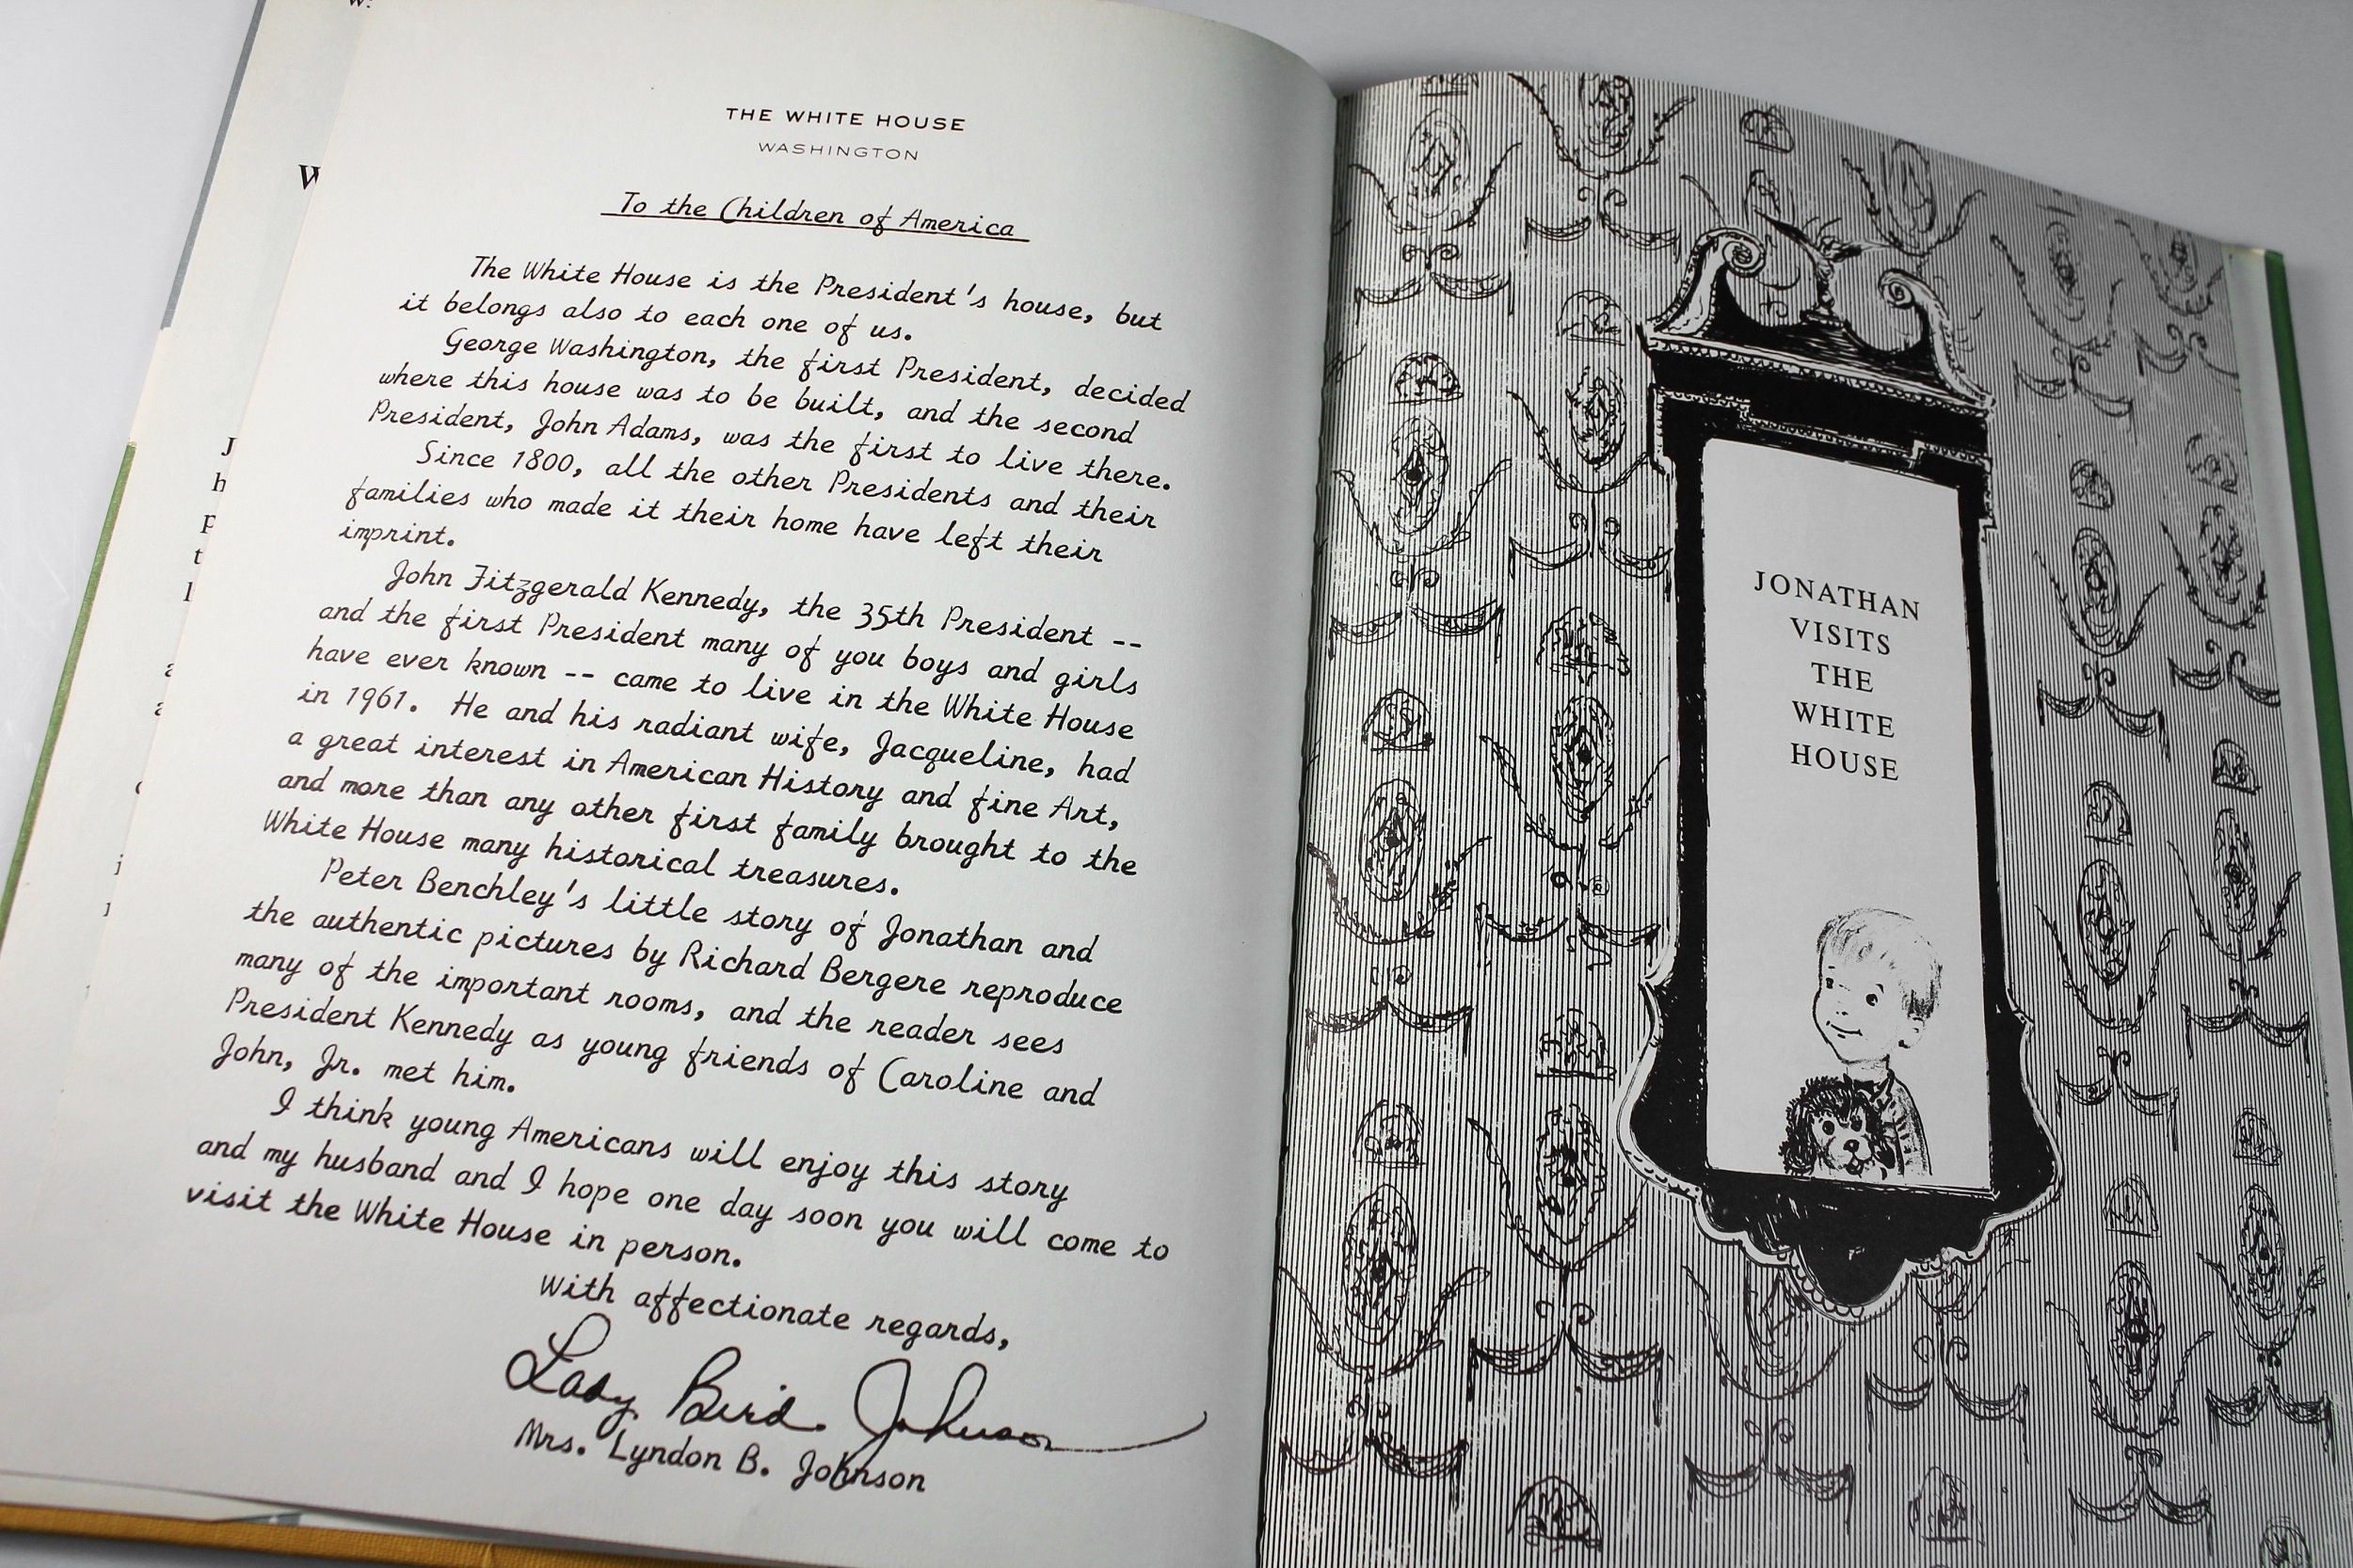 THE WHITE HOUSE
WASHINGTON
To the Children of America
The White House is the President's house, but
it belongs also to each one of us.
George Washington, the first President, decided
where this house was to be built, and the second
President, John Adams, was the first to live there.
Since 1800, all the other Presidents and their
families who made it their home have left their
imprint.
John Fitzgerald Kennedy, the 35th President --
and the first President many of you boys and girls
have ever known -- came to live in the White House
in 1961. He and his radiant wife, Jacqueline, had
a great interest in American History and fine Art,
and more than any other first family brought to the
White House many historical treasures.
Peter Benchley's little story of Jonathan and
the authentic pictures by Richard Bergere reproduce
many of the important rooms, and the reader sees
President Kennedy as young friends of Caroline and
John, Jr. met him.
I think young Americans will enjoy this story
and my husband and I hope one day soon you will come to
visit the White House in person.
With affectionate regards,
Lady Bird Johnson
Mrs. Lyndon B. Johnson
JONATHAN
VISITS
THE
WHITE
HOUSE